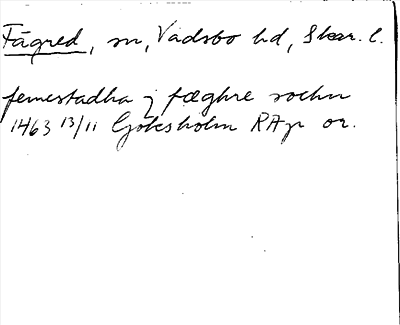 Fägred, sn, Vadsbo hd, Skar. l.
femestadha j fæghre sochn
1463 13/11 Göksholm RAp or.